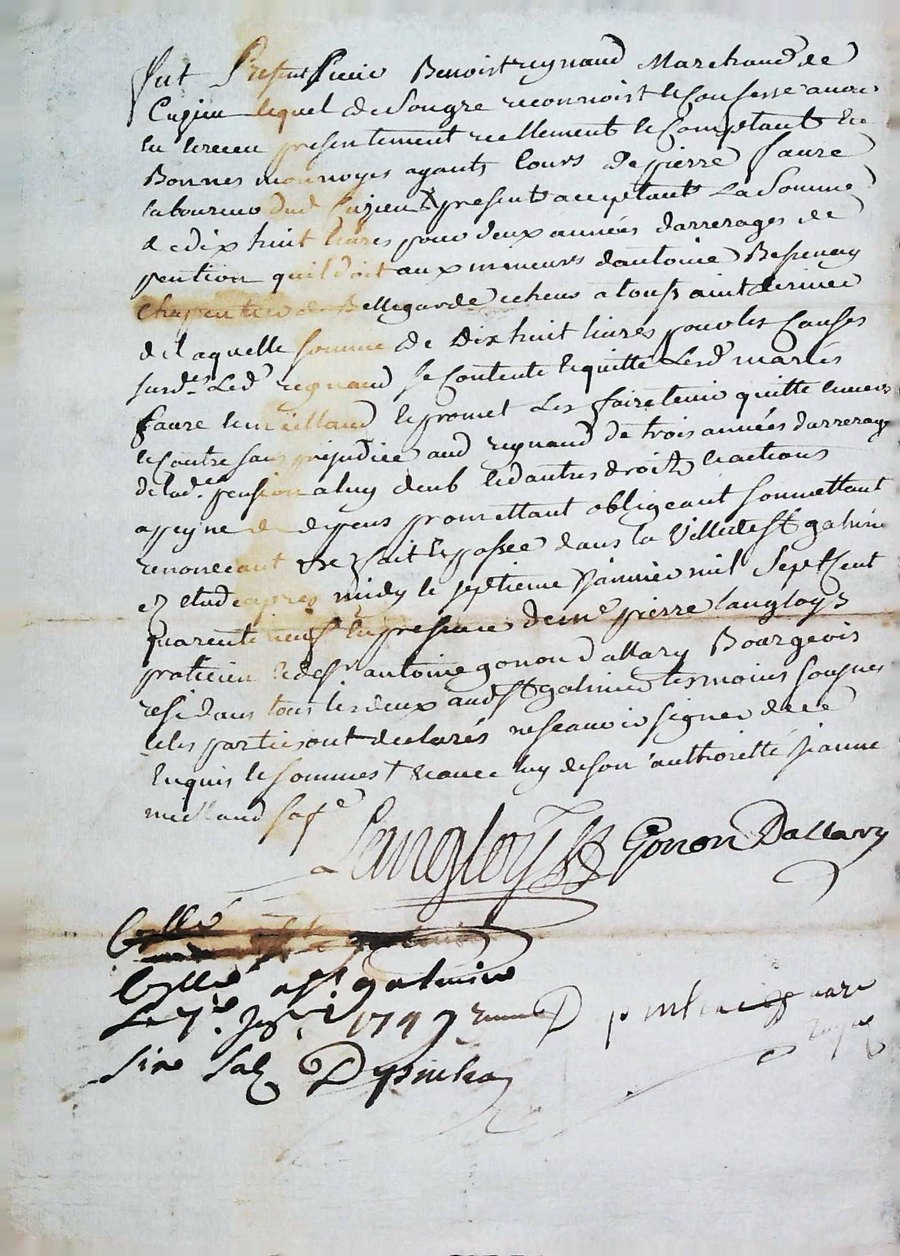 fut Present sieur Benoist reynaud Marchand de
Cuzieu lequel de Son gré reconnoist et Confesse avoir
eu et receu presentement reellement et Comptant En
Bonnes monnoyes ayants Cours de pierre faure
laboureur dud Cuzieu present acceptant La Somme
de dix huit livres pour deux années darrerages de
pention quil doit aux mineurs dantoine Bessenay
Charpentier de Bellegarde echeus a toussaint derniere
de laquelle somme de Dix huit livres pour les Causes
susd.es Led. reynaud se Contente et quitte Lesd. mariés
faure et meilland et promet Les faire tenir quitte envers
et Contre sans prejudice aud reynaud de trois années darrerage
de lad.e pension a luy deub et dautres droits et actions
a peyne de depens promettant obligeant soumettant
renonceant &c fait et passé dans la Ville de St galmier
ez etude apres midy le septieme Janvier mil Sept Cent
quarente neuf En presence de me pierre langloys
praticien et de sr antoine gonon dallary Bourgeois
residans tous les deux aud St galmier tesmoins sousnes
et les parties ont declarés ne scavoir signer de ce
Enquis et sommes + et avec luy de son authoritté jeanne
meilland sa fe
Langloys Gonon Dallary
Cllé
Cllé a St galmier
Le 7e Janr 1749